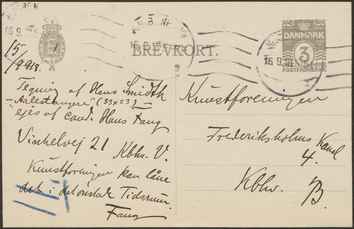 BREVKORT.
DANMARK
3
POSTFRIM
16.9.
15/
9 918
Tegning af Hans Smidth
(33x23)
ejes af cand. Hans Fang
Vinkelvej 21 Kbhv. V.
Kunstforeningen kan låne
i det ønskede Tidsrum.
Fang
Kunstforeningen
Frederiksholms Kanal
4.
Kbhv. B